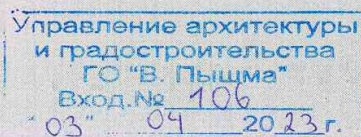 Управление архитектуры
и градостроительства
ГО "В. Пышма"
Вход.№ 106
"03" 04 2023 г.